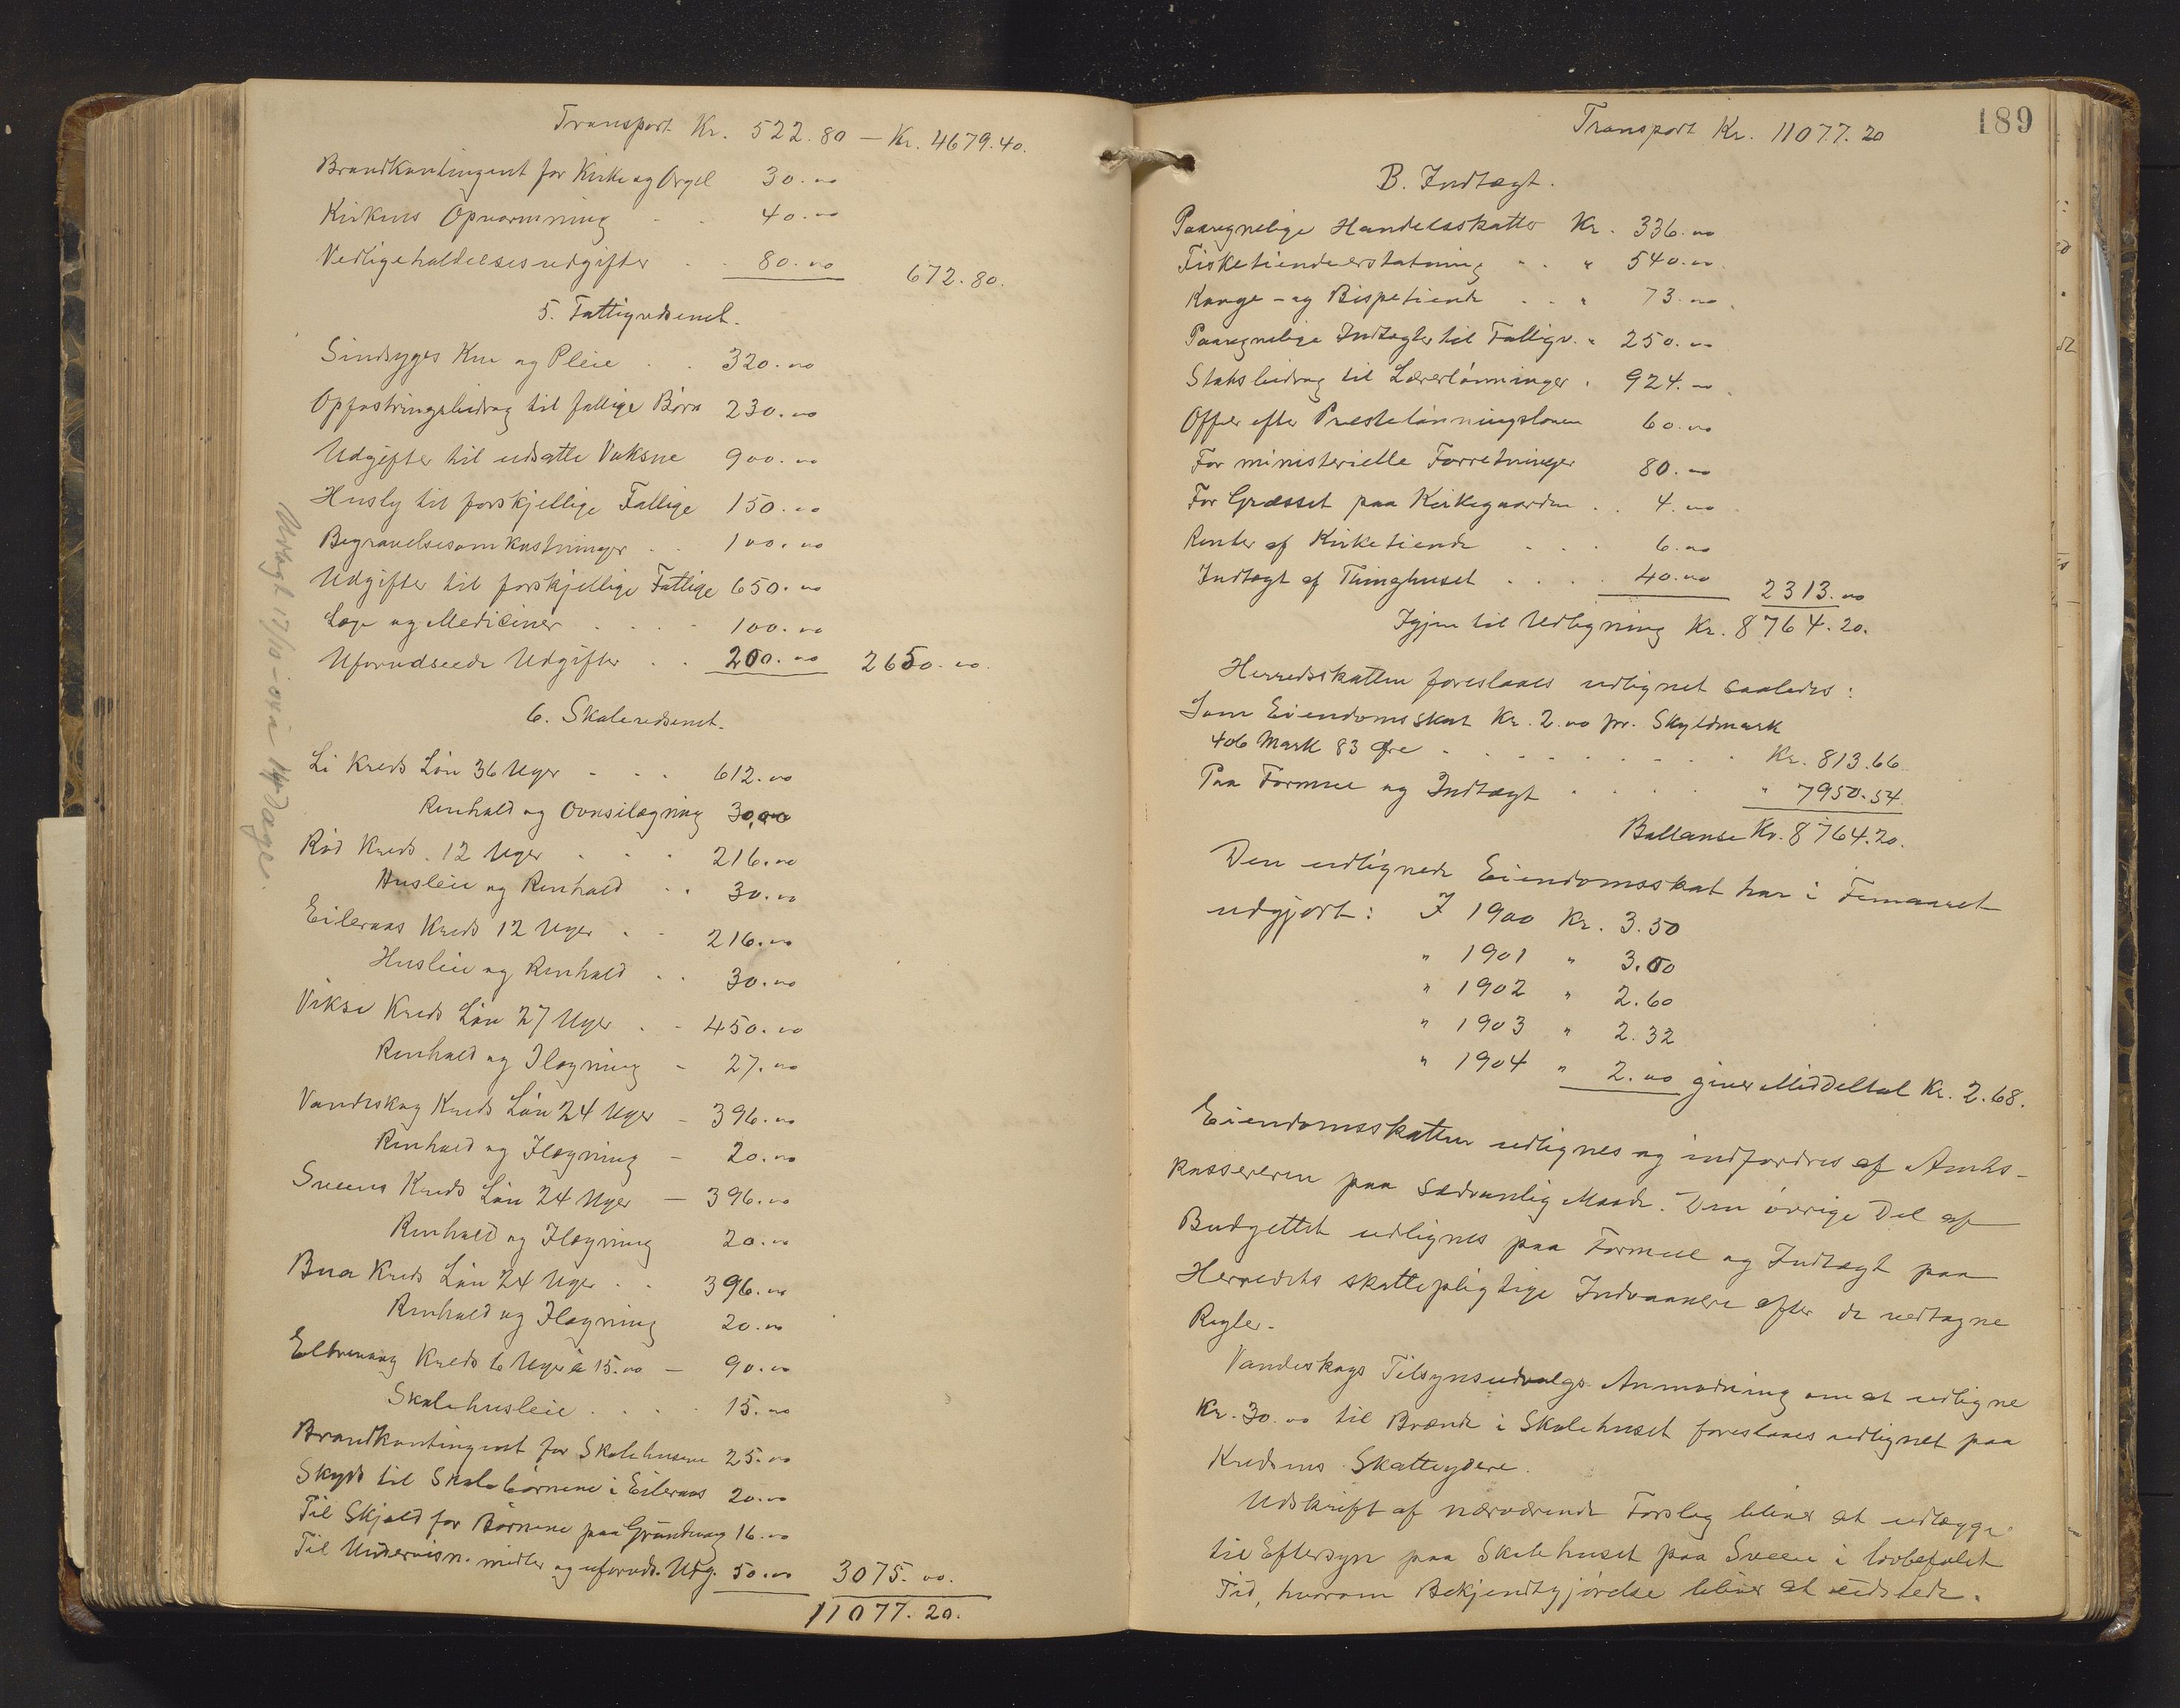 Transport Kr. 522.80 — Kr. 4679.40.
Brandkontingent for Kirke og Orgel 30.00
Kirkens Opvarmning - - 40.00
Vedligeholdelsesudgifter - - 80.00 672.80.
5. Fattigvæsenet.
Sindsyges Kur og Pleie . . 320.00
Opfostringsbidrag til fattige Börn 230.00
Udgifter til udsatte Voksne 900.00
Husly til forskjellige Fattige 150.00
Begravelsesomkostninger . . 100.00
Udgifter til forskjellige Fattige 650.00
Læge og Mediciner . . . . 100.00
Uforudseede Udgifter . . 200.00 2650.00.
6. Skolevæsenet.
Li Kreds Lön 36 Uger - . . 612.00
Renhold og Ovnsilægning 30,00
Röd Kreds. 12 Uger . . . 216.00
Husleie og Renhold . . 30.00
Eileraas Kreds 12 Uger . - 216.00
Husleie og Renhold . . 30.00
Vikse Kreds Lön 27 Uger . - 450.00
Renhold og Ilægning - 27.00
Vandeskog Kreds Lön 24 Uger - 396.00
Renhold og Ilægning - 20.00
Sveens Kreds Lön 24 Uger — 396.00
Renhold og Ilægning 20.00
Bua Kreds Lön 24 Uger . . 396.00
Renhold og Ilægning 20.00
Kreds 6 Uger à 15.00 — 90.00
Skolehusleie . . . . 15.00
Brandkontingent for Skolehusene 25.00
Skyds til Skolebörnene i Eileraas 20.00
Til Skjold for Börnene paa 16.00
Til Undervisn. midler og uforuds. Udg. 50.00 3075.00.
11077.20.
Udlagt 17/10 - 04 i 14 Dage.
189
Transport Kr. 11077.20
B. Indtægt.
Paaregnelige Handelsskatte Kr. 336.00
Fisketiendeerstatning . . " 540.00
Konge- og Bispetiende . . " 73.00
Paaregnelige Indtægter til Fattigv. " 250.00
Statsbidrag til Lærerlönninger . 924.00
Offer efter Prestelönningsloven 60.00
For ministerielle Forretninger 80.00
For Græsset paa Kirkegaarden . . 4.00
Renter af Kirketiende . . . 6.00
Indtægt af Thinghuset . . . . 40.00 2313.00
Igjen til Udligning Kr. 8764.20.
Herredsskatten foreslaaes udlignet saaledes:
Som Eiendomsskat Kr. 2.00 pr. Skyldmark
406 Mark 83 Øre . . . . . . . . Kr. 813.66
Paa Formue og Indtægt . . . . " 7950.54
Ballanse Kr. 8764.20.
Den udlignede Eiendomsskat har i Femaaret
udgjort: I 1900 Kr. 3.50
" 1901 " 3.00
" 1902 " 2.60
" 1903 " 2.32
" 1904 " 2.00 giver Middeltal Kr. 2.68.
Eiendomsskatten udlignes og indfordres af Amts-
kassereren paa sædvanlig Maade. Den övrige Del af
Budgettet udlignes paa Formue og Indtægt paa
Herredets skattepligtige Indvaanere efter de vedtagne
Regler.
Vandeskogs Tilsynsudvalgs Anmodning om at udligne
Kr. 30.00 til Brænde i Skolehuset foreslaaes udlignet paa
Kredsens Skatteydere.
Udskrift af nærværende Forslag bliver at udlægge
til Eftersyn paa Skolehuset paa Sveen i lovbefalet
Tid, hvorom Bekjendtgjörelse bliver at udstede.